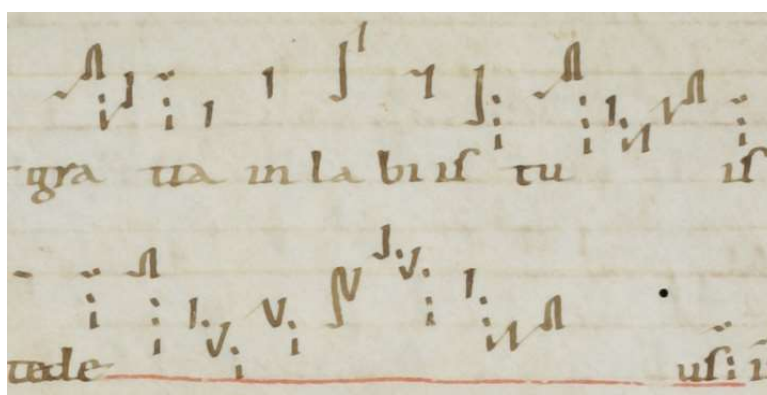 gra tia in la bi is tu is
te de us: i